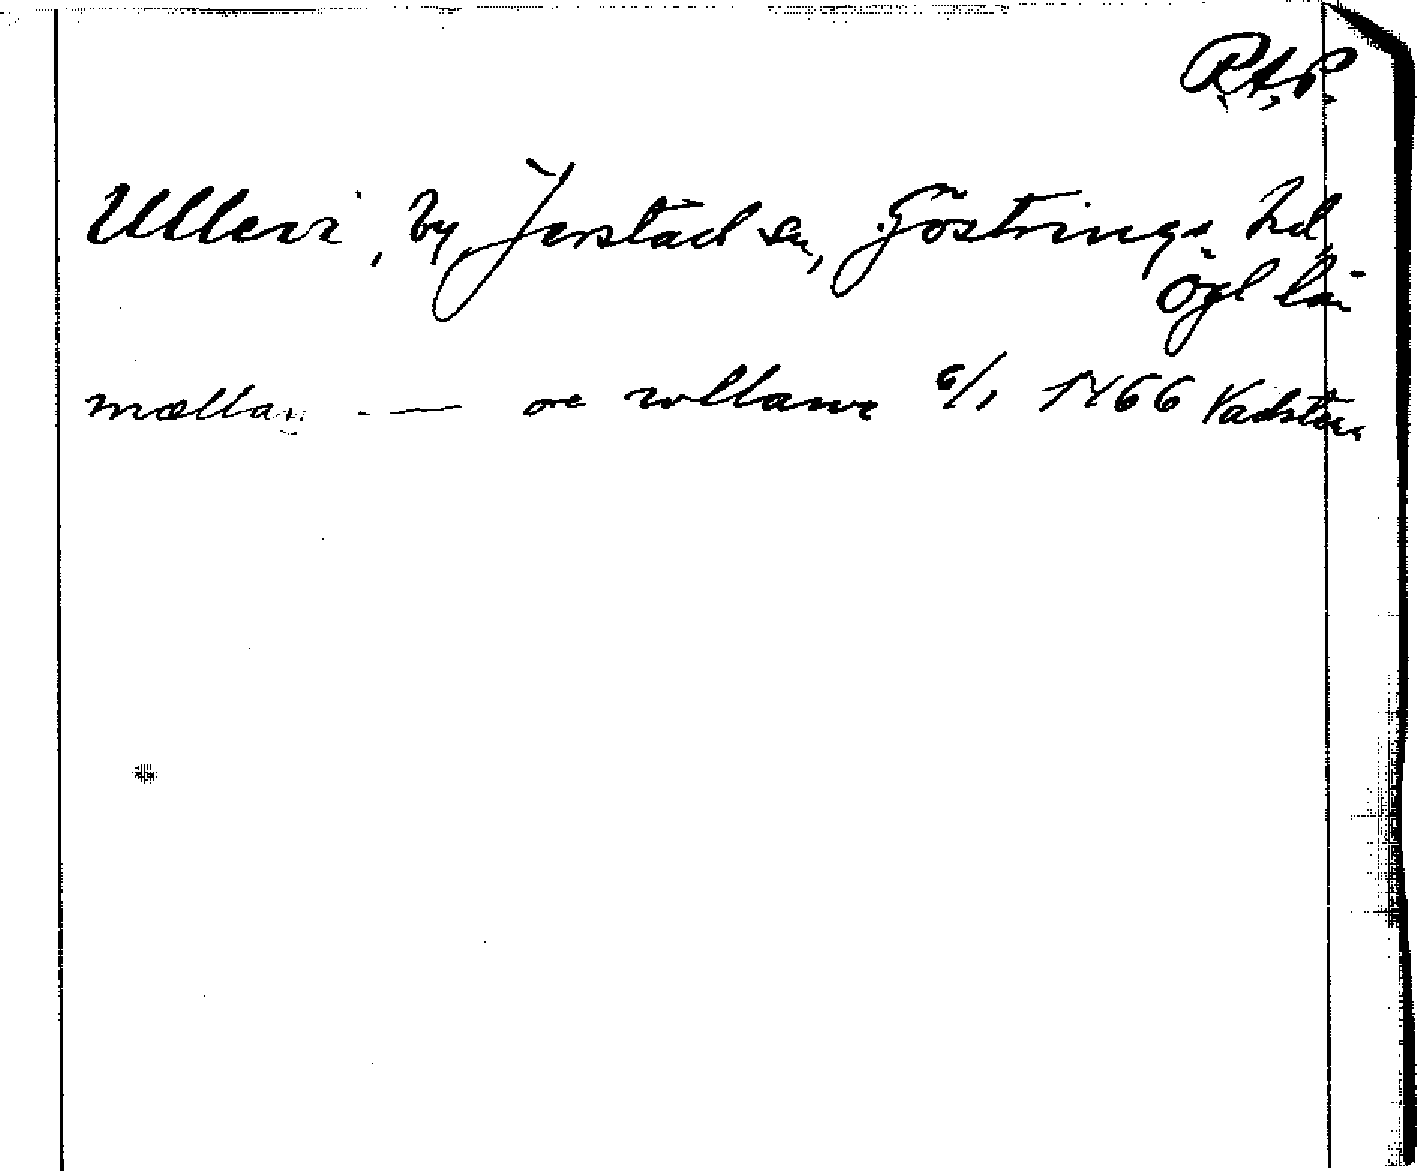 R.A.P.
Ullevi, by, Järstad sn, Göstrings hd,
Ögl län
mællan - — oc wllawe 6/1 1466 Vadstena